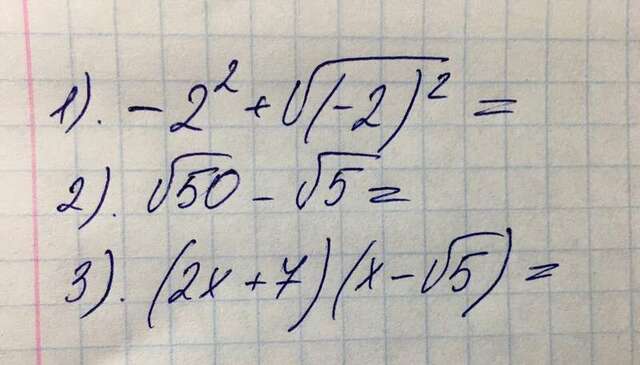 1). -2² + √(-2)² =
2). √50 - √5 =
3). (2x + 7)(x - √5) =